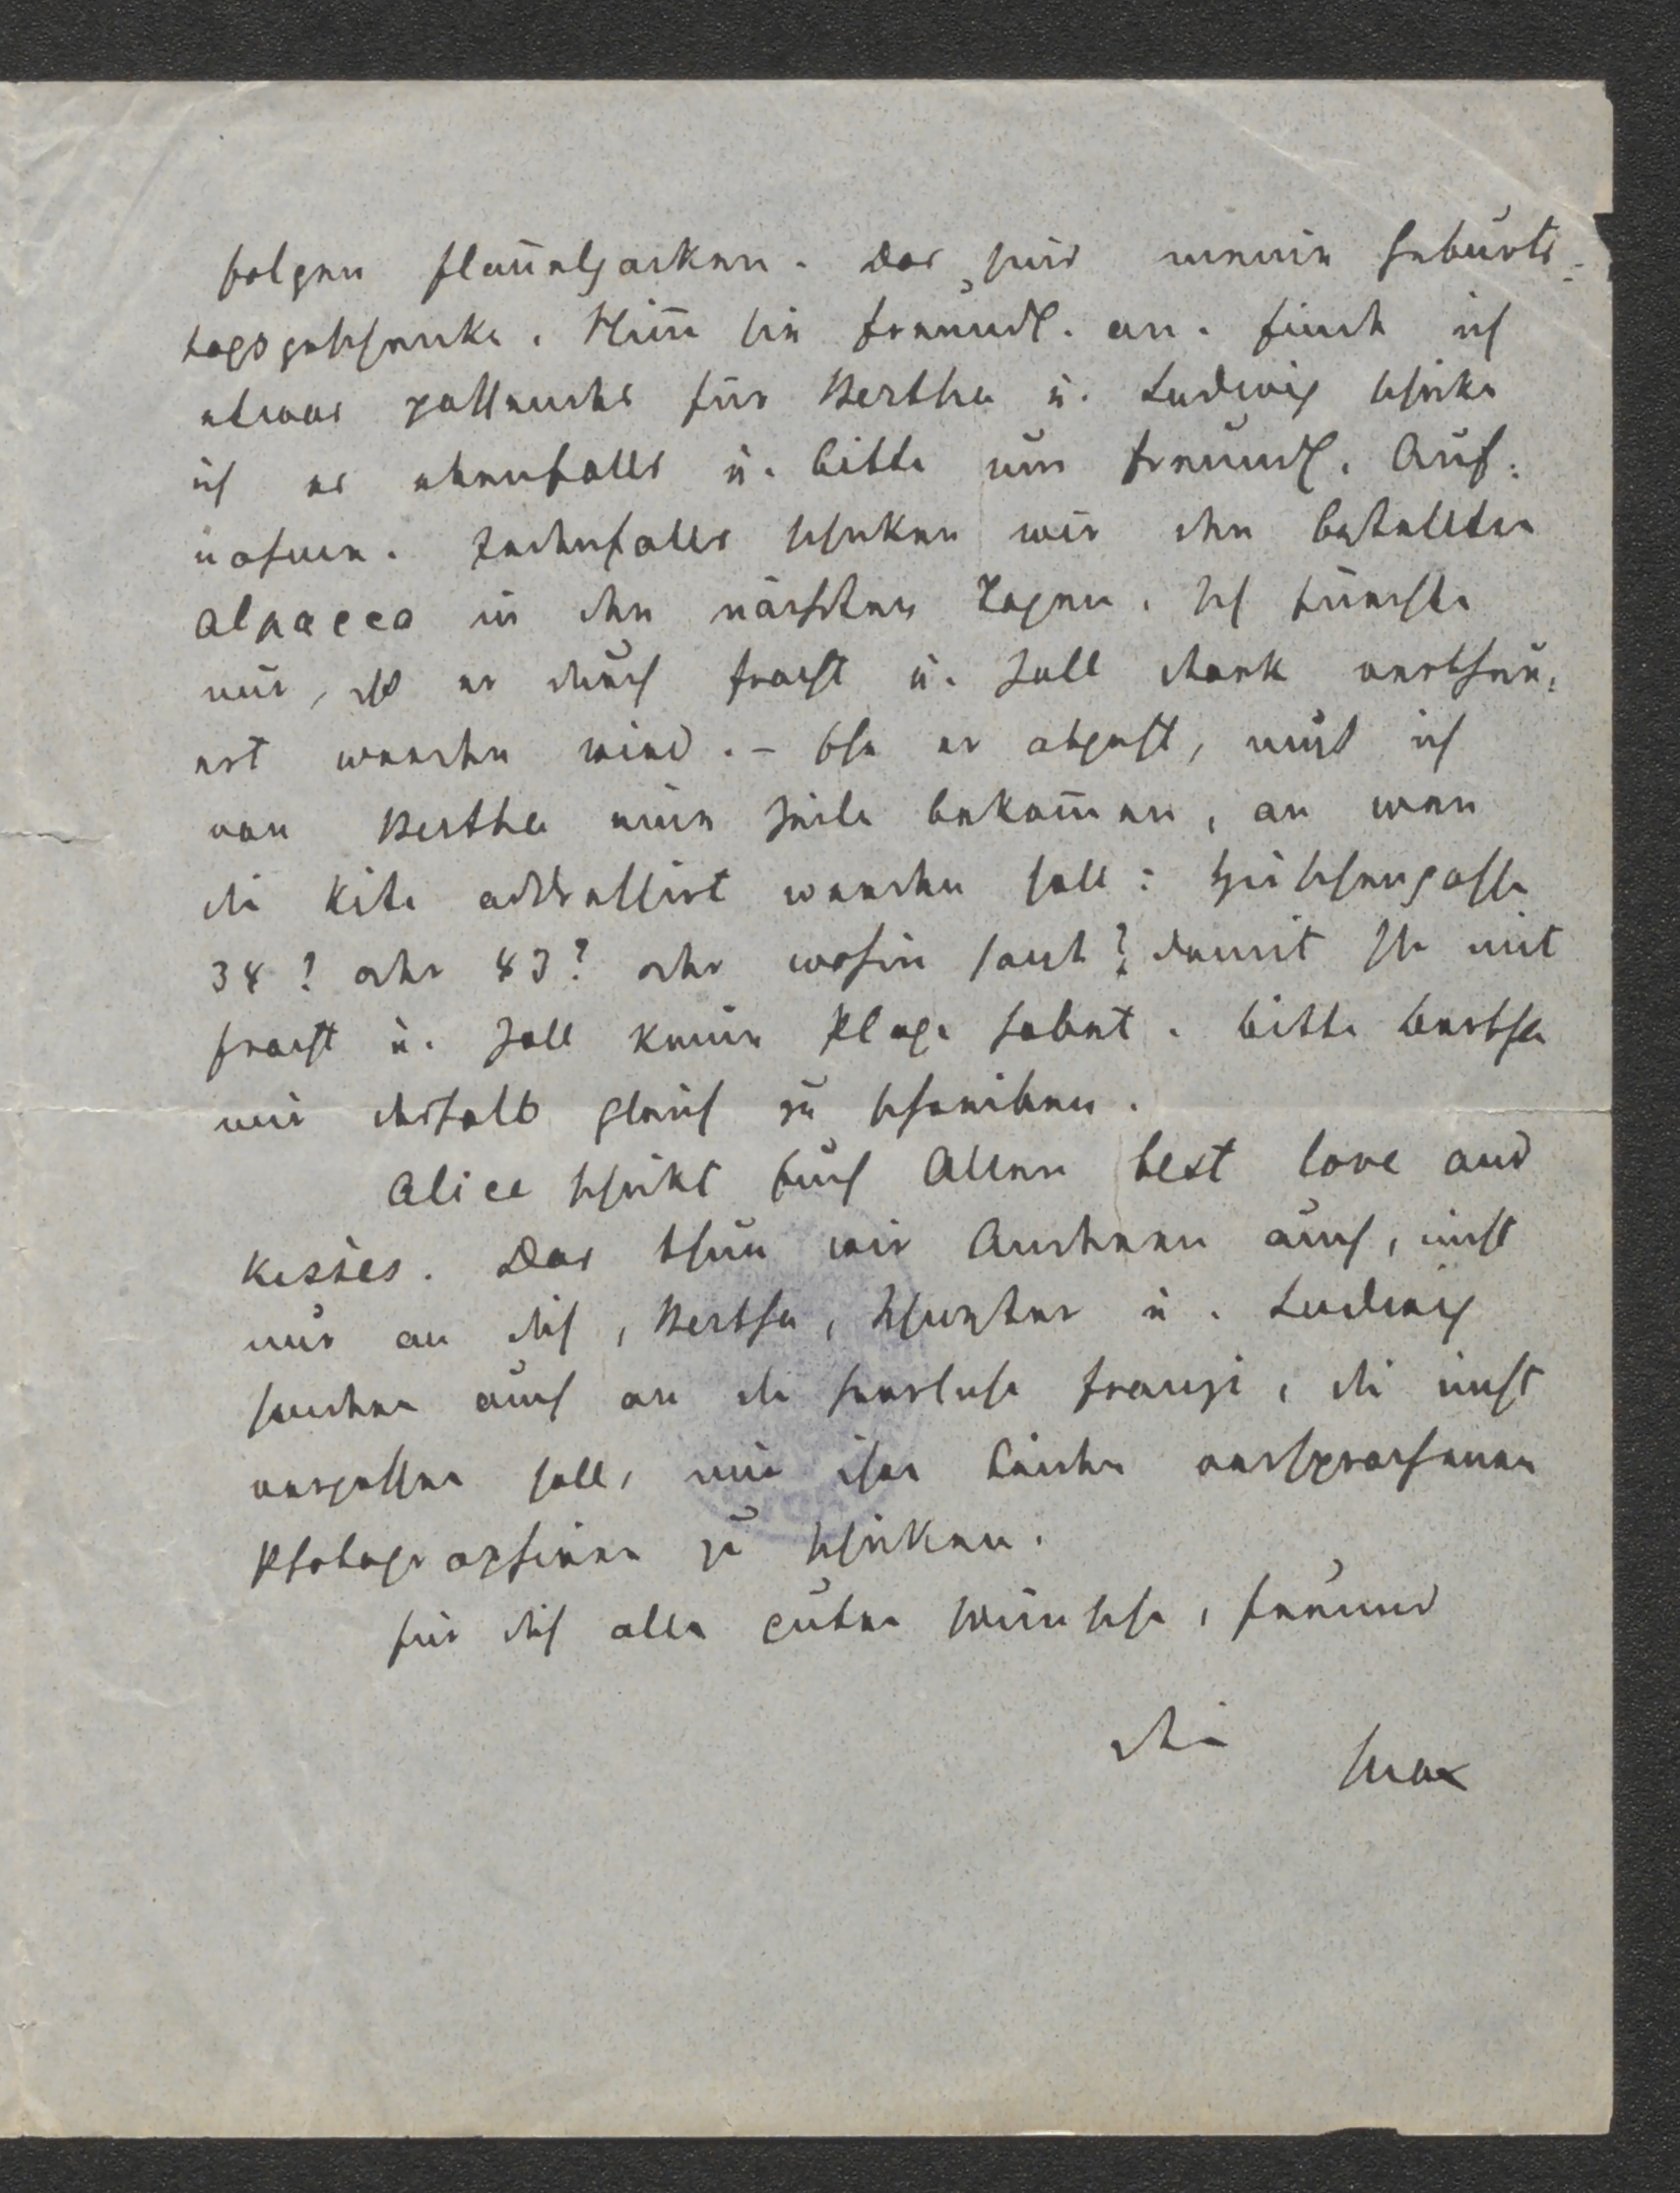 folgen Flanelljacken. Das sind meine Geburts-
tagsgeschenke. Nim̄ sie freundl. an. Finde ich
etwas passendes für Bertha u. Ludwig schicke
ich es ebenfalls u. bitte um freundl. Auf-
nahme. Jedenfalls schicken wir den bestellten
Alpacca in den nächsten Tagen. Ich fürchte
nur, dß er durch Fracht u. Zoll stark vertheu-
ert werden wird. – Ehe er abgeht, muß ich
von Bertha eine Zeile bekom̄en, an wen
die Kiste addressirt werden soll:
34? oder 43? oder wohin sonst? damit Ihr mit
Fracht u. Zoll keine Plage habet. Bitte Bertha
mir deshalb gleich zu schreiben.
Alice schickt Euch Allen best love and
kisses. Das thun wir Anderen auch, nicht
nur an dich, Bertha, Schwester u. Ludwig
sondern auch an die herzliche Franzi, die nicht
vergessen soll, mir ihre beiden versprochenen
Photographieen zu schicken.
Für dich alle guten Wünsche, Freund
Dein Max